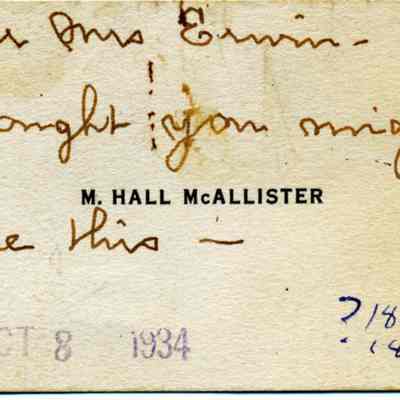 r Mrs Erwin-
ought you mig
M. HALL McALLISTER
e this —
CT 8 1934
? 18